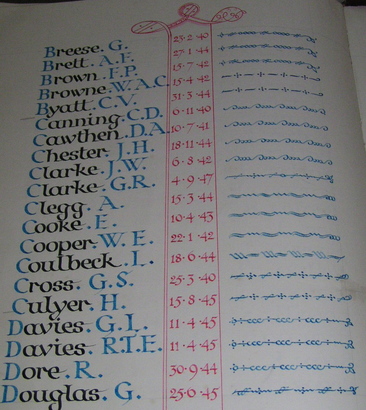 Breese. G. 23·2·40
Brett. A.F. 27·1·44
Brown. F.P. 15·7·42
Browne. W.A.C. 15·4·42
Byatt. C.V. 31·3·44
Canning. C.D. 6·11·40
Cawthen. D.A. 10·7·41
Chester. J.H. 18·11·44
Clarke. J.W. 6·8·42
Clarke. G.R. 4·9·47
Clegg. A. 15·3·44
Cooke. E. 10·4·43
Cooper. W.E. 22·1·42
Coulbeck. L. 18·6·44
Cross. G.S. 25·3·40
Culyer. H. 15·8·45
Davies. G.L. 11·4·45
Davies. R.T.E. 11·4·45
Dore. R. 30·9·44
Douglas. G. 25·0·45